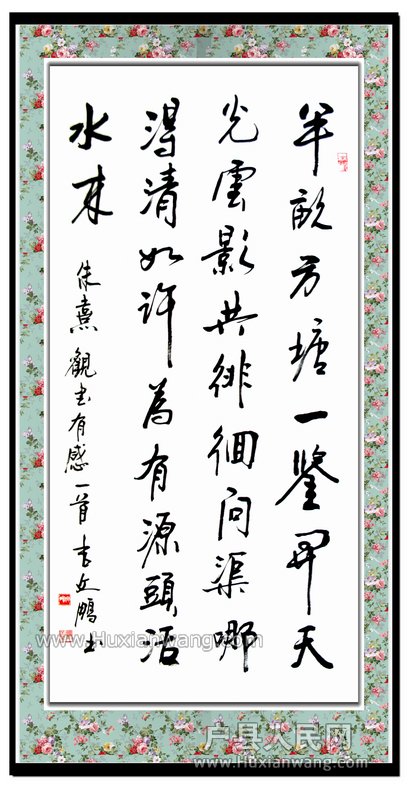 半畝方塘一鑒開天
光雲影共徘徊問渠哪
得清如許為有源頭活
水來
朱熹觀書有感一首 李鵬書
www.Huxianwang.com
户县人民网
www.Huxianwang.com